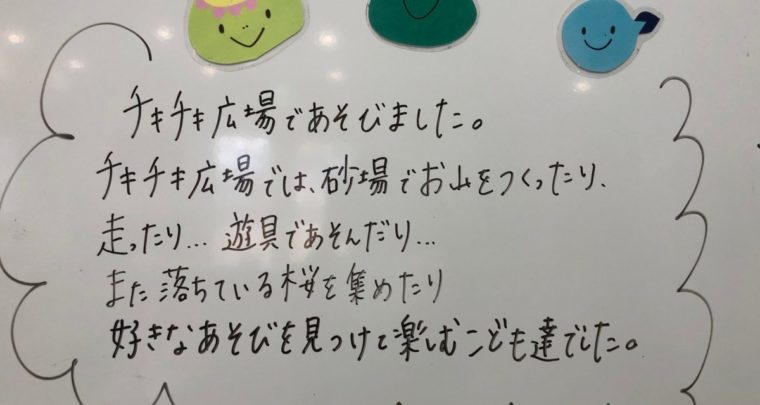 チキチキ広場であそびました。
チキチキ広場では、砂場でお山をつくったり、
走ったり… 遊具であそんだり…
また落ちている桜を集めたり
好きなあそびを見つけて楽しむこども達でした。